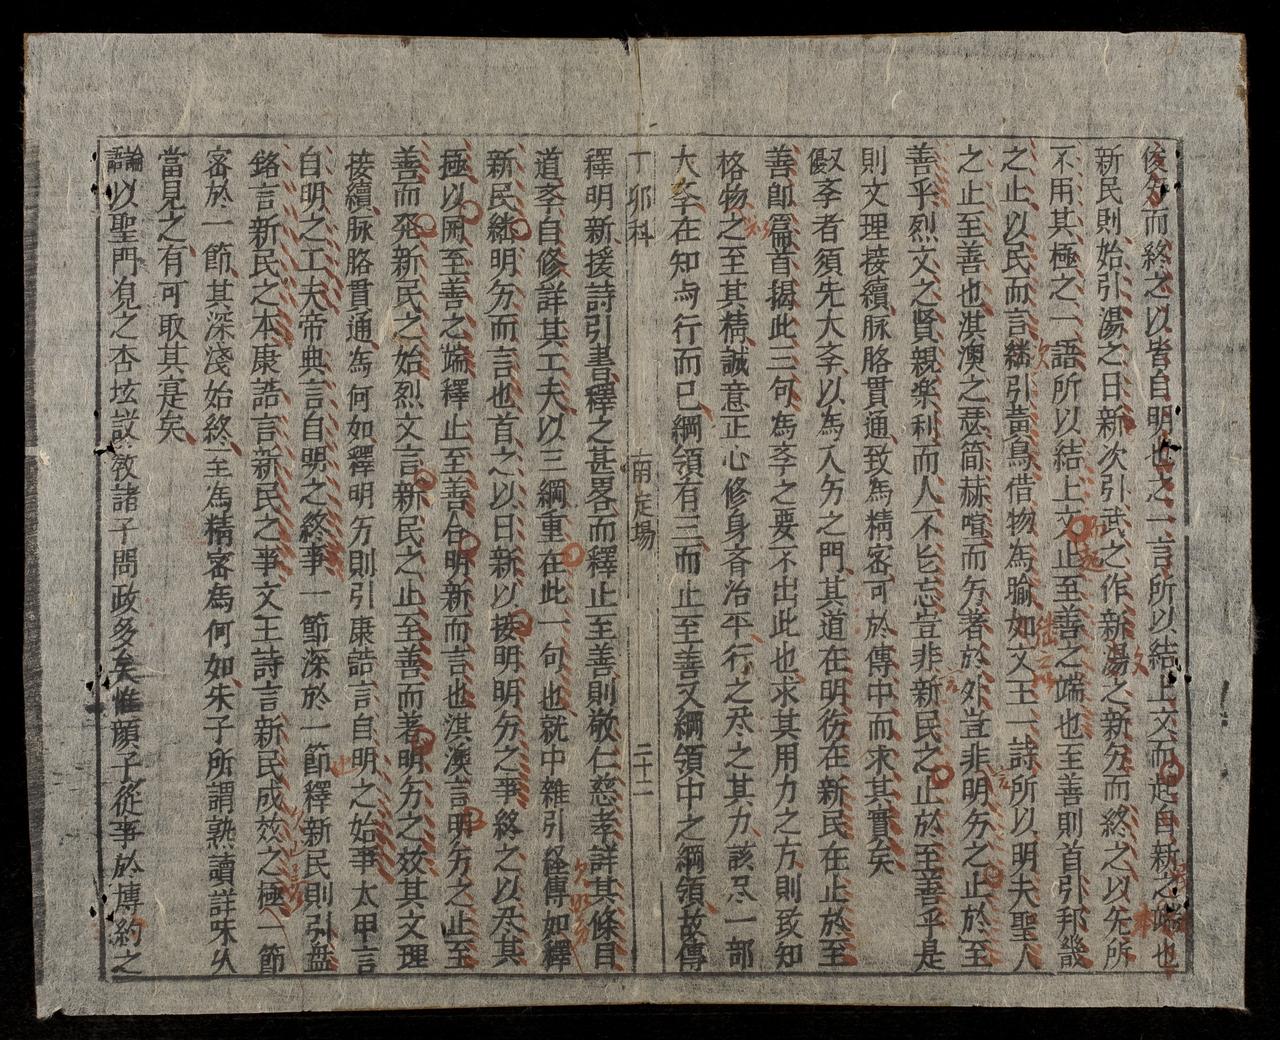 俊匀而終之以皆自明也之一言所以結上文而起自新之端也
新民則始引湯之日新次引武之作新湯之新匀而終之以无所
不用其極之一語所以結上文止至善之端也至善則首引邦畿
之止以民而言継引黄鳥借物為喻如文王一詩所以明夫聖人
之止至善也淇澳之瑟简赫喧而匀著於外豈非明匀之止於至
善乎烈文之賢親楽利而人不匕忘豈非新民之止於至善乎是
則文理接續脉胳貫通致為精密可於傳中而求其實矣
斈者須先大斈以為入匀之門其道在明匀在新民在止於至
善即篇首揭此三句為斈之要不出此也求其用力之方則致知
格物之至其精誠意正心修身斉治平行之尽之其力該尽一部
大斈在知与行而已綱領有三而止至善又綱領中之綱領故傳
丁卯科 南定場 二十二
釋明新援詩引書釋之甚畧而釋止至善則敬仁慈孝詳其條目
道斈自修詳其工夫以三綱重在此一句也就中雜引経傳如釋
新民継明匀而言也首之以日新以接明明匀之事終之以尽其
極以囙至善之端釋止至善合明新而言也淇澳言明匀之止至
善而発新民之始烈文言新民之止至善而著明匀之效其文理
接續脉胳貫通為何如釋明匀則引康誥言自明之始事太甲言
自明之工夫帝典言自明之終事一節深於一節釋新民則引盘
銘言新民之本康誥言新民之事文王詩言新民成效之極一節
密於一節其深淺始終至為精密為何如朱子所謂熟讀詳味乆
當見之有可取其寔矣
論語以聖門見之杏坛設教諸子問政多矣惟顔子從事於博約之